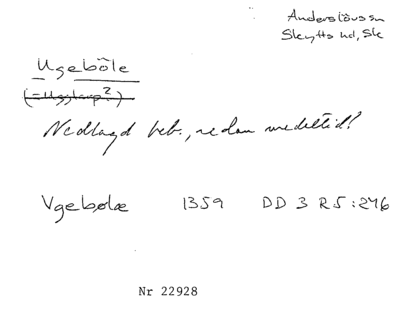 Anderslövs sn
Skytts hd, Sk
Ugeböle
(= Ugglarp?)
Nedlagd beb., redan medeltid!
Vgebølæ 1359 DD 3 R 5:276
Nr 22928